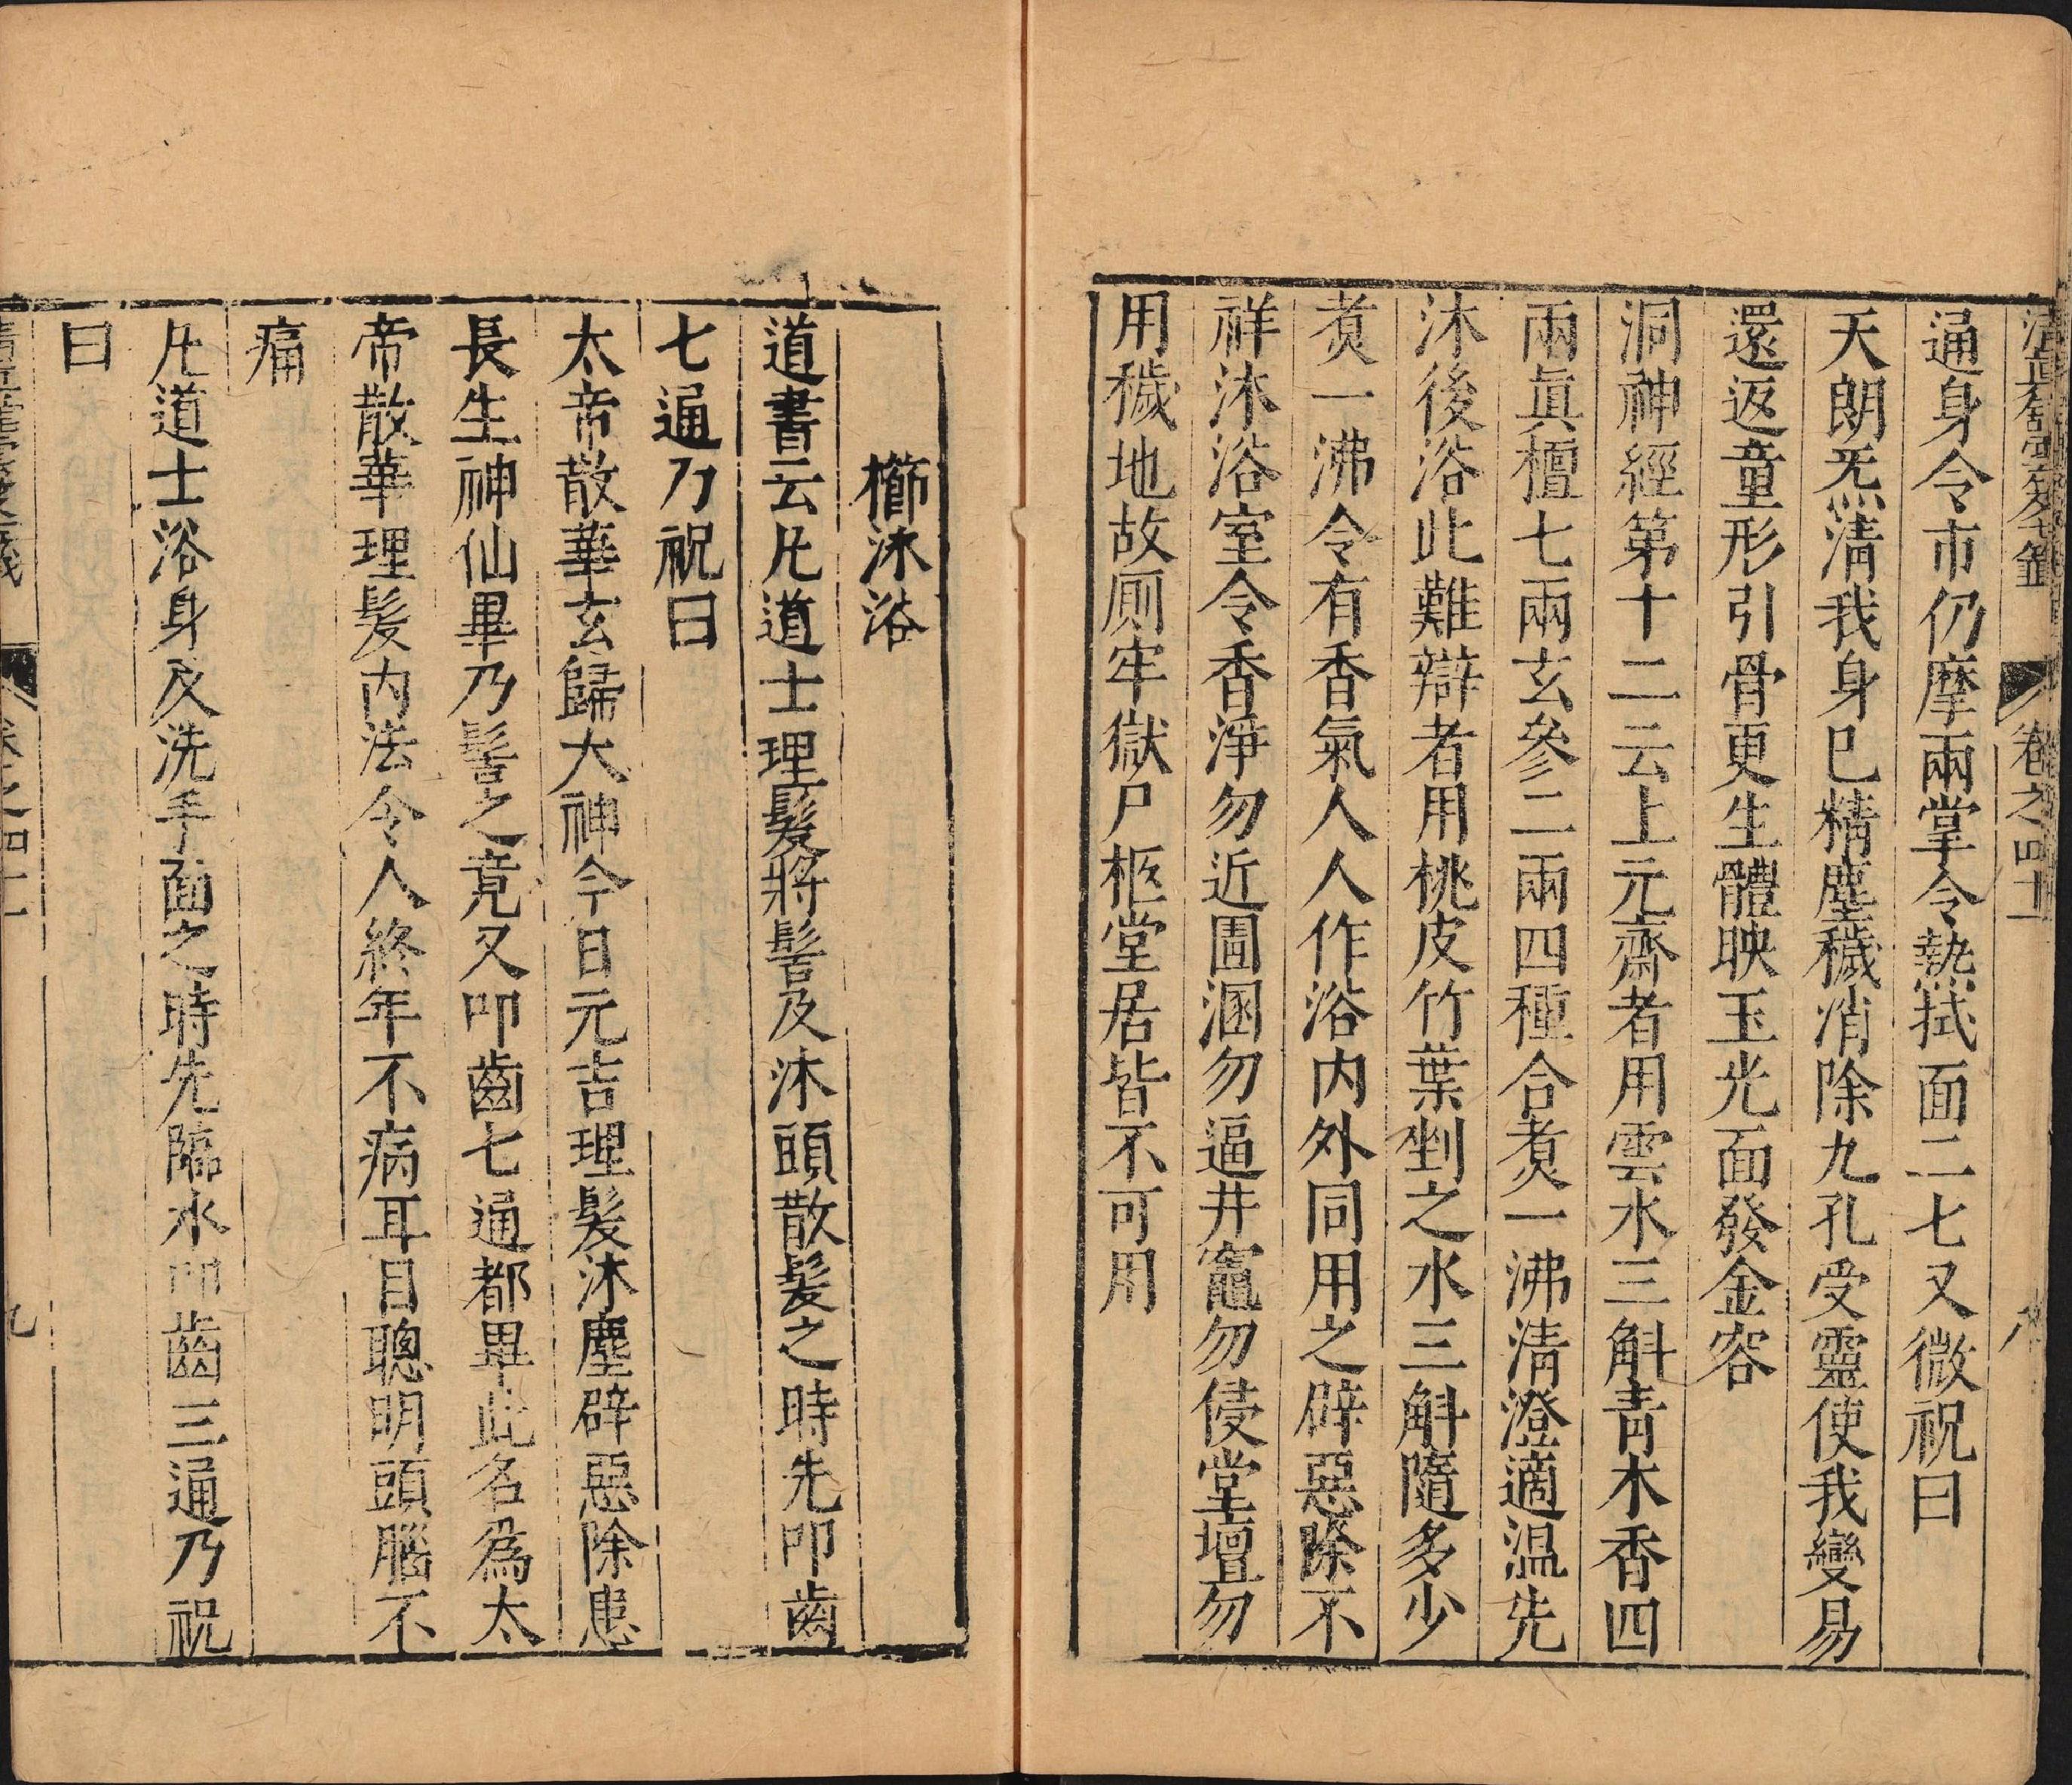 清真舘雲笈七籤 卷之四十一 八
通身令市仍摩兩掌令熱拭面二七又微祝曰
天朗炁清我身已精塵穢消除九孔受靈使我變易
還返童形引骨更生體映玉光面發金容
洞神經第十二云上元齋者用雲水三斛青木香四
兩眞檀七兩玄參二兩四種合煑一沸清澄適温先
沐後浴此難辯者用桃皮竹葉剉之水三斛隨多少
煑一沸令有香氣人人作浴内外同用之辟惡除不
祥沐浴室令香淨勿近圊溷勿逼井竈勿侵堂壇勿
用穢地故厠牢獄尸柩堂居皆不可用
櫛沐浴
道書云凡道士理髮將髻及沐頭散髮之時先叩齒
七通乃祝曰
太帝散華玄歸大神今日元吉理髮沐塵辟惡除患
長生神仙畢乃髻之竟又叩齒七通都畢此名爲太
帝散華理髮内法令人終年不病耳目聰明頭腦不
痛
凡道士浴身及洗手面之時先臨水叩齒三通乃祝
曰
卷之四十一 九